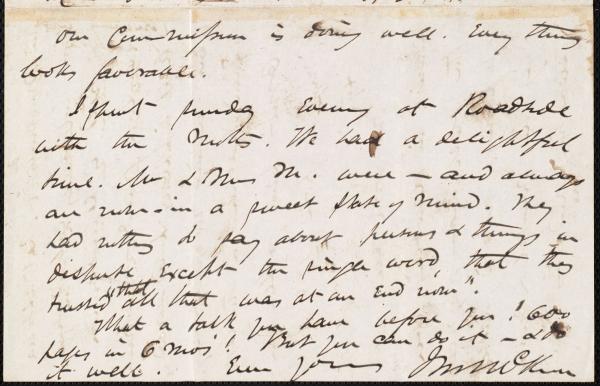 our Commission is doing well. Every thing
looks favorable.
I spent Sunday Evening at Roadside
with the Motts. We had a delightful
time. Mr & Mrs M. were — and always
are now — in a sweet state of mind. They
had nothing to say about persons & things in
dispute except the single word, that they
trusted "that all that was at an End now".
What a talk you have before you! 600
pages in 6 mos! But you can do it — & do
it well. Ever yours